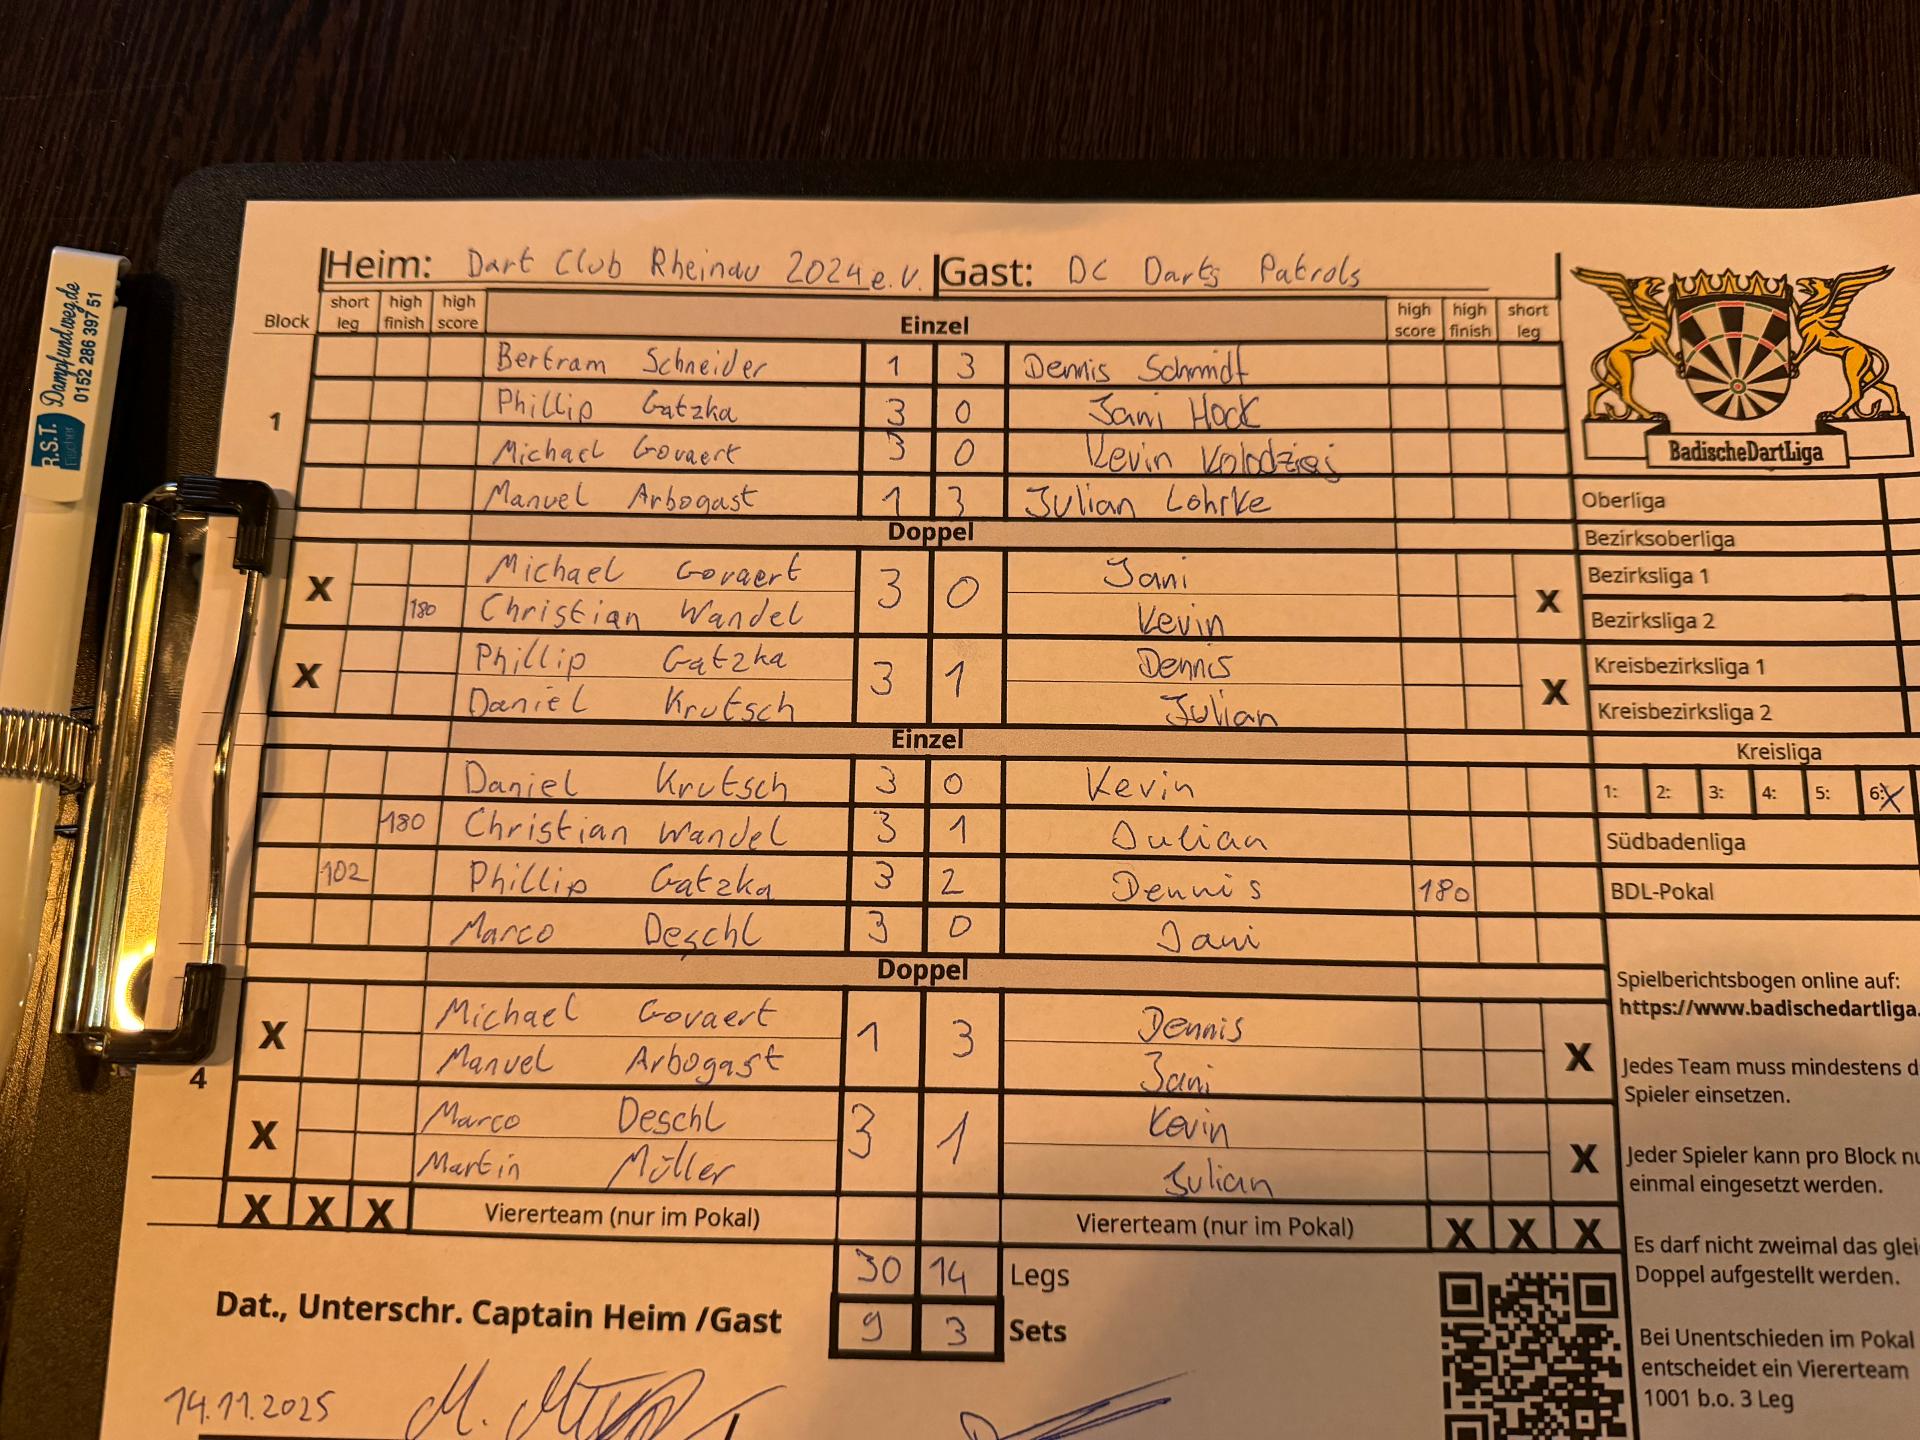 Heim: Dart Club Rheinau 2024 e.V. Gast: DC Darts Patrols
Block short leg high finish high score Einzel high score high finish short leg
Bertram Schneider 1 3 Dennis Schmidt
1 Phillip Gatzka 3 0 Jani Hock
Michael Govaert 3 0 Kevin Kolodziej
Manuel Arbogast 1 3 Julian Lohrke
Doppel
X Michael Govaert 3 0 Jani X
180 Christian Wandel Kevin
X Phillip Gatzka 3 1 Dennis X
Daniel Krutsch Julian
Einzel
Daniel Krutsch 3 0 Kevin
180 Christian Wandel 3 1 Julian
102 Phillip Gatzka 3 2 Dennis 180
Marco Deschl 3 0 Jani
Doppel
X Michael Govaert 1 3 Dennis X
Manuel Arbogast Jani
4
X Marco Deschl 3 1 Kevin X
Martin Müller Julian
X X X Viererteam (nur im Pokal) Viererteam (nur im Pokal) X X X
30 14 Legs
Dat., Unterschr. Captain Heim /Gast 9 3 Sets
14.11.2025
BadischeDartLiga
Oberliga
Bezirksoberliga
Bezirksliga 1
Bezirksliga 2
Kreisbezirksliga 1
Kreisbezirksliga 2
Kreisliga
1: 2: 3: 4: 5: 6: X
Südbadenliga
BDL-Pokal
Spielberichtsbogen online auf:
https://www.badischedartliga.
Jedes Team muss mindestens
Spieler einsetzen.
Jeder Spieler kann pro Block
einmal eingesetzt werden.
Es darf nicht zweimal das
Doppel aufgestellt werden.
Bei Unentschieden im Pokal
entscheidet ein Viererteam
1001 b.o. 3 Leg
R.S.T. Fischer
Dampfundweg.de
0152 286 397 51